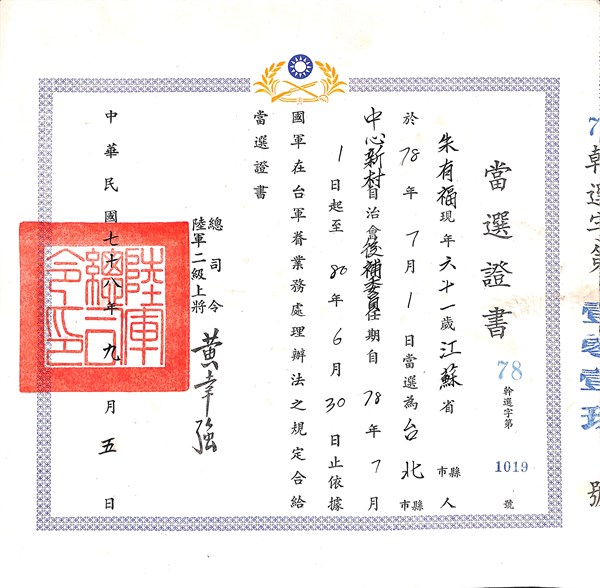 78幹選字第1019號
當選證書
朱有福現年六十一歲江蘇省縣市人
於78年7月1日當選為台北縣市
中心新村自治會後補委員任期自78年7月
1日起至80年6月30日止依據
國軍在台軍眷業務處理辦法之規定合給
當選證書
總司令
陸軍二級上將 黃幸強
陸軍總司令印
中華民國七十八年九月五日